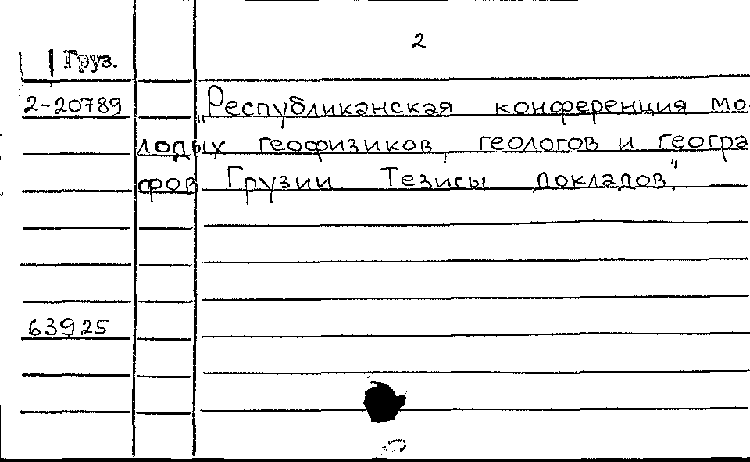 2
Груз.
2-20789 „Республиканская конференция мо-
лодых геофизиков, геологов и геогра
фов Грузии. Тезисы докладов."
63925